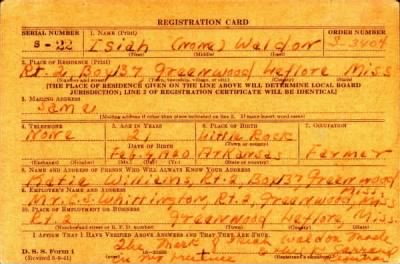 REGISTRATION CARD
SERIAL NUMBER 1. NAME (Print) ORDER NUMBER
S-22 Isiah (None) Waldon S-3404
(First) (Middle) (Last)
2. PLACE OF RESIDENCE (Print)
Rt. 2, Box 137 Greenwood Leflore Miss
[THE PLACE OF RESIDENCE GIVEN ON THE LINE ABOVE WILL DETERMINE LOCAL BOARD
JURISDICTION; LINE 2 OF REGISTRATION CERTIFICATE WILL BE IDENTICAL]
3. MAILING ADDRESS
Same
[Mailing address if other than place indicated on line 2. If same insert word same]
4. TELEPHONE 5. AGE IN YEARS 6. PLACE OF BIRTH 7. OCCUPATION
None 21 Little Rock
DATE OF BIRTH (Town or county)
Feb. Arkansas Farmer
(Exchange) (Number) (Mo.) (Day) (Yr.) (State or country)
8. NAME AND ADDRESS OF PERSON WHO WILL ALWAYS KNOW YOUR ADDRESS
Williams, Rt. 2, Box 137 Greenwood
Miss.
9. EMPLOYER'S NAME AND ADDRESS
Mr. C. S. Whittington, Rt. 2, Greenwood, Miss.
10. PLACE OF EMPLOYMENT OR BUSINESS
Rt. 2 Greenwood Leflore Miss.
(Number and street or R. F. D. number) (Town) (County) (State)
I AFFIRM THAT I HAVE VERIFIED ABOVE ANSWERS AND THAT THEY ARE TRUE.
D. S. S. Form 1 The mark of Isiah Waldon made
in my